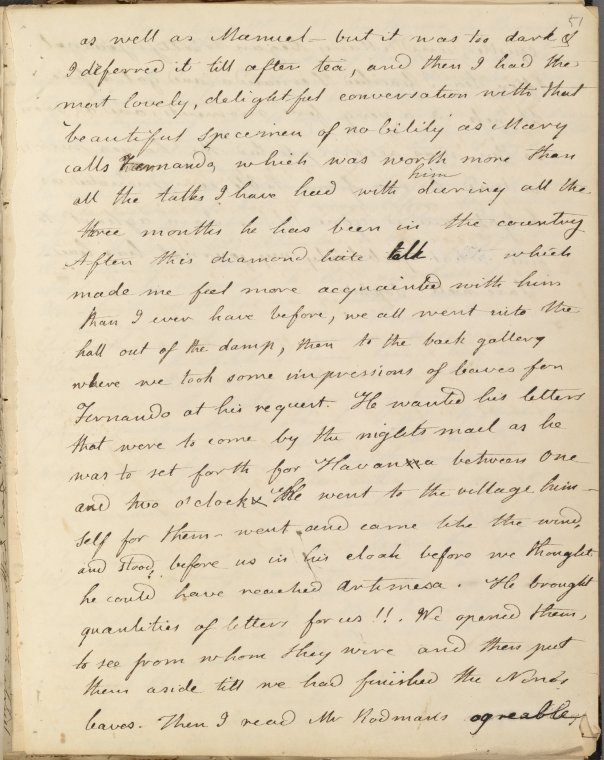 51
as well as Manuel – but it was too dark &
I deferred it till after tea, and then I had the
most lovely, delightful conversation with that
"beautiful specimen of nobility" as Mary
calls Fernando, which was worth more than
all the talks I have had with him during all the
three months he has been in the country.
After this diamond talk which
made me feel more acquainted with him
than I ever have before, we all went into the
hall out of the damp, then to the back gallery
where we took some impressions of leaves for
Fernando at his request. He wanted his letters
that were to come by the nights mail as he
was to set forth for Havana between one
and two o'clock & He went to the village him–
self for them – went and came like the wind,
and stood before us in his cloak before we thought
he could have reached Artimesa. He brought
quantities of letters for us!!. We opened them,
to see from whom they were and then put
them aside till we had finished the Nino's
leaves. Then I read Mr Rodman's agreable,